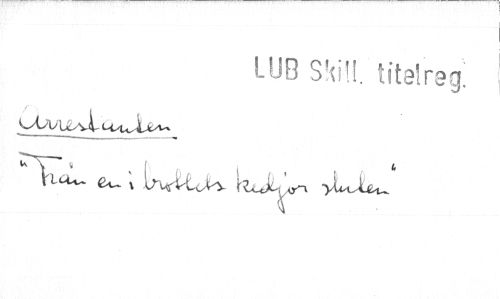 LUB Skill. titelreg.
Arrestanten
"Från en i brottets kedjor sluten"